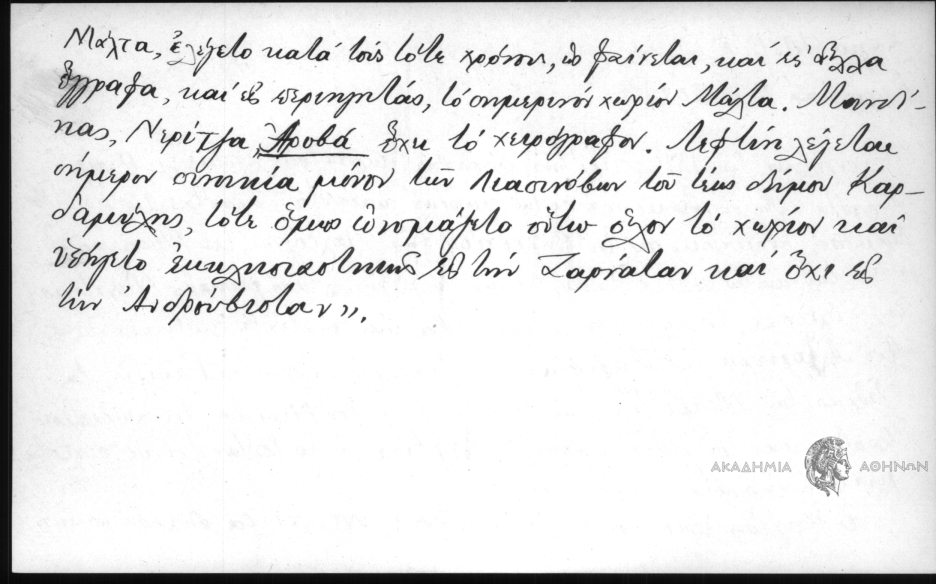 Μάλτα, ἐλέγετο κατά τούς τότε χρόνους, ὡς φαίνεται, καί εἰς ἄλλα
ἔγγραφα, καί εἰς περιηγητάς, τό σημερινόν χωρίον Μάλτα. Μαντί-
νας, Νερίτζα, Ἀροβά ἔχει τό χειρόγραφον. Λεφτίνι λέγεται
σήμερον συνοικία μόνον τῶν Λιασινόβων τοῦ τέως δήμου Καρ-
δαμύλης, τότε ὅμως ὠνομάζετο οὕτω ὅλον τό χωρίον καί
ὑπήγετο ἐκκλησιαστικῶς εἰς τήν Ζαρνάταν καί ὄχι εἰς
τήν Ἀνδρούβισταν».
ΑΚΑΔΗΜΙΑ ΑΘΗΝΩΝ